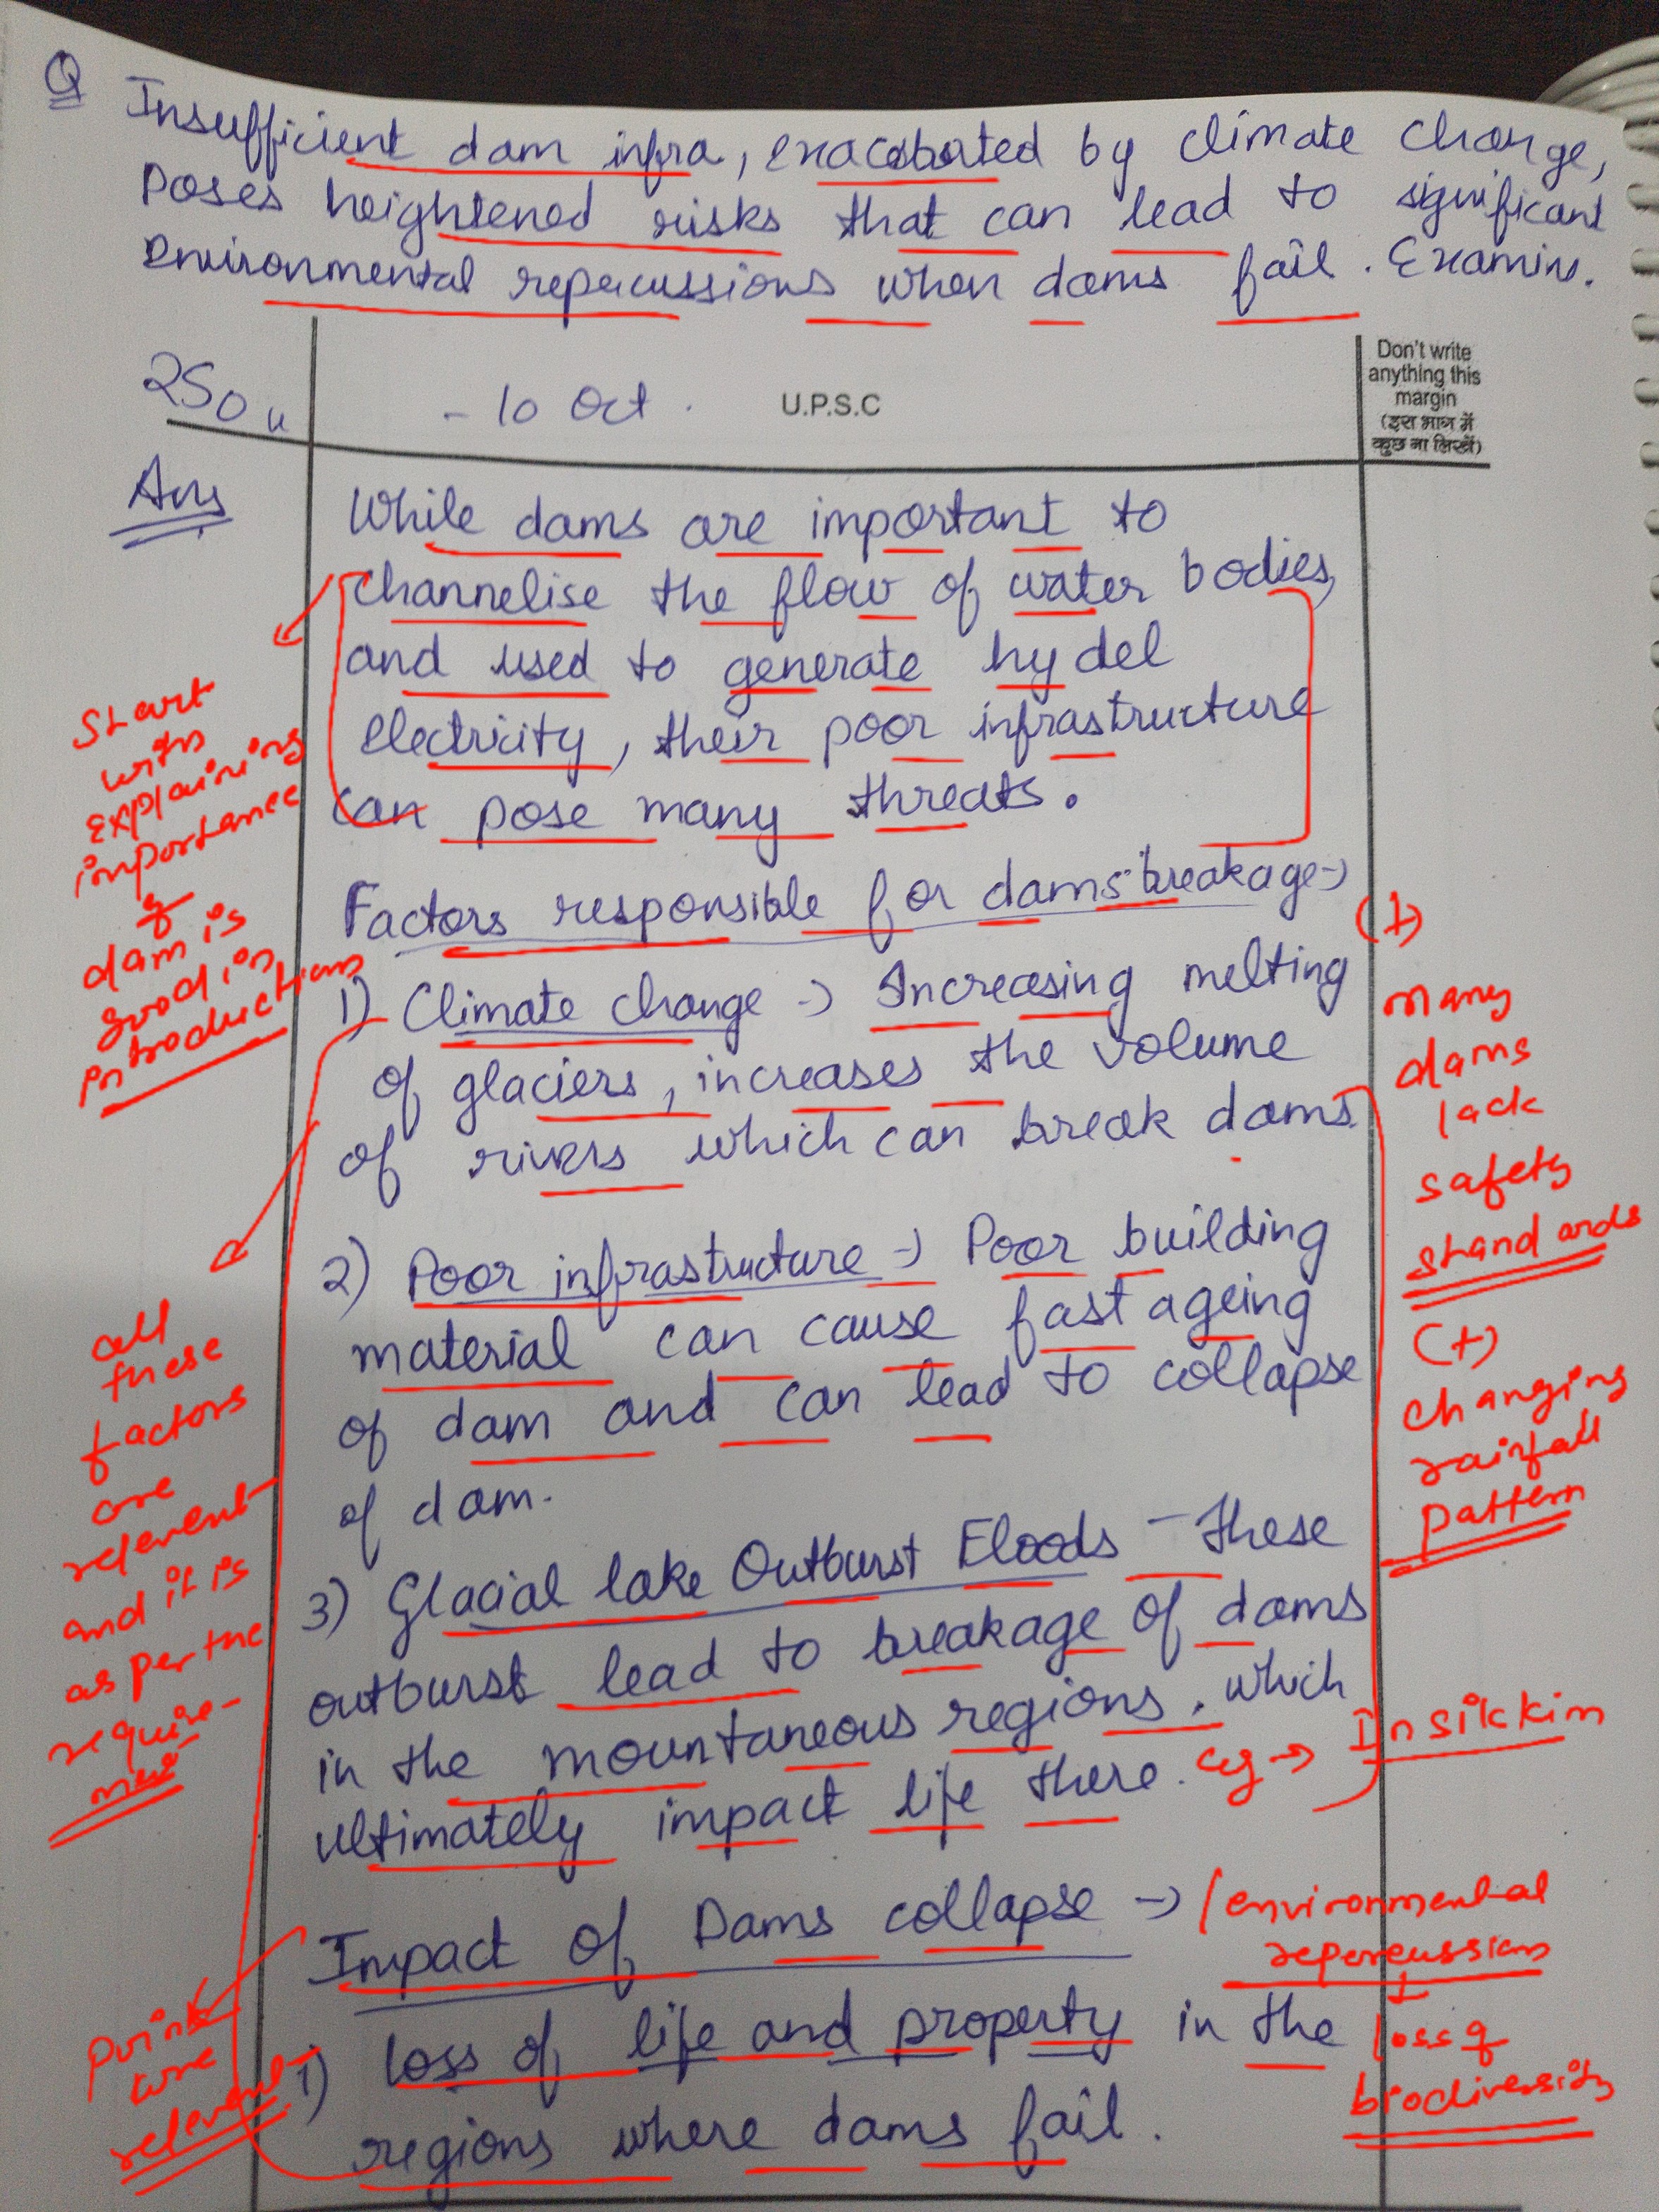 Q Insufficient dam infra, exacerbated by climate change,
poses heightened risks that can lead to significant
environmental repercussions when dams fail. Examine.
250 w - 10 Oct. U.P.S.C
Don't write
anything this
margin
(इस भाग में
कुछ ना लिखें)
Ans
While dams are important to
channelise the flow of water bodies,
and used to generate hydel
electricity, their poor infrastructure
can pose many threats.
Start
with
explaining
importance
of
dam is
good in
introduction
Factors responsible for dams breakage →
1) Climate change → Increasing melting
of glaciers, increases the volume
of rivers which can break dams.
2) Poor infrastructure → Poor building
material can cause fast ageing
of dam and can lead to collapse
of dam.
3) Glacial lake Outburst Floods - These
outburst lead to breakage of dams
in the mountaneous regions, which
ultimately impact life there. eg → In sikkim
(+)
Many
dams
lack
safety
standards
(+)
changing
rainfall
pattern
all
these
factors
are
relevent
and it is
as per the
require-
ment
Impact of Dams collapse → / environmental
repercussions
1) Loss of life and property in the
regions where dams fail.
loss of
biodiversity
Points
are
relevent